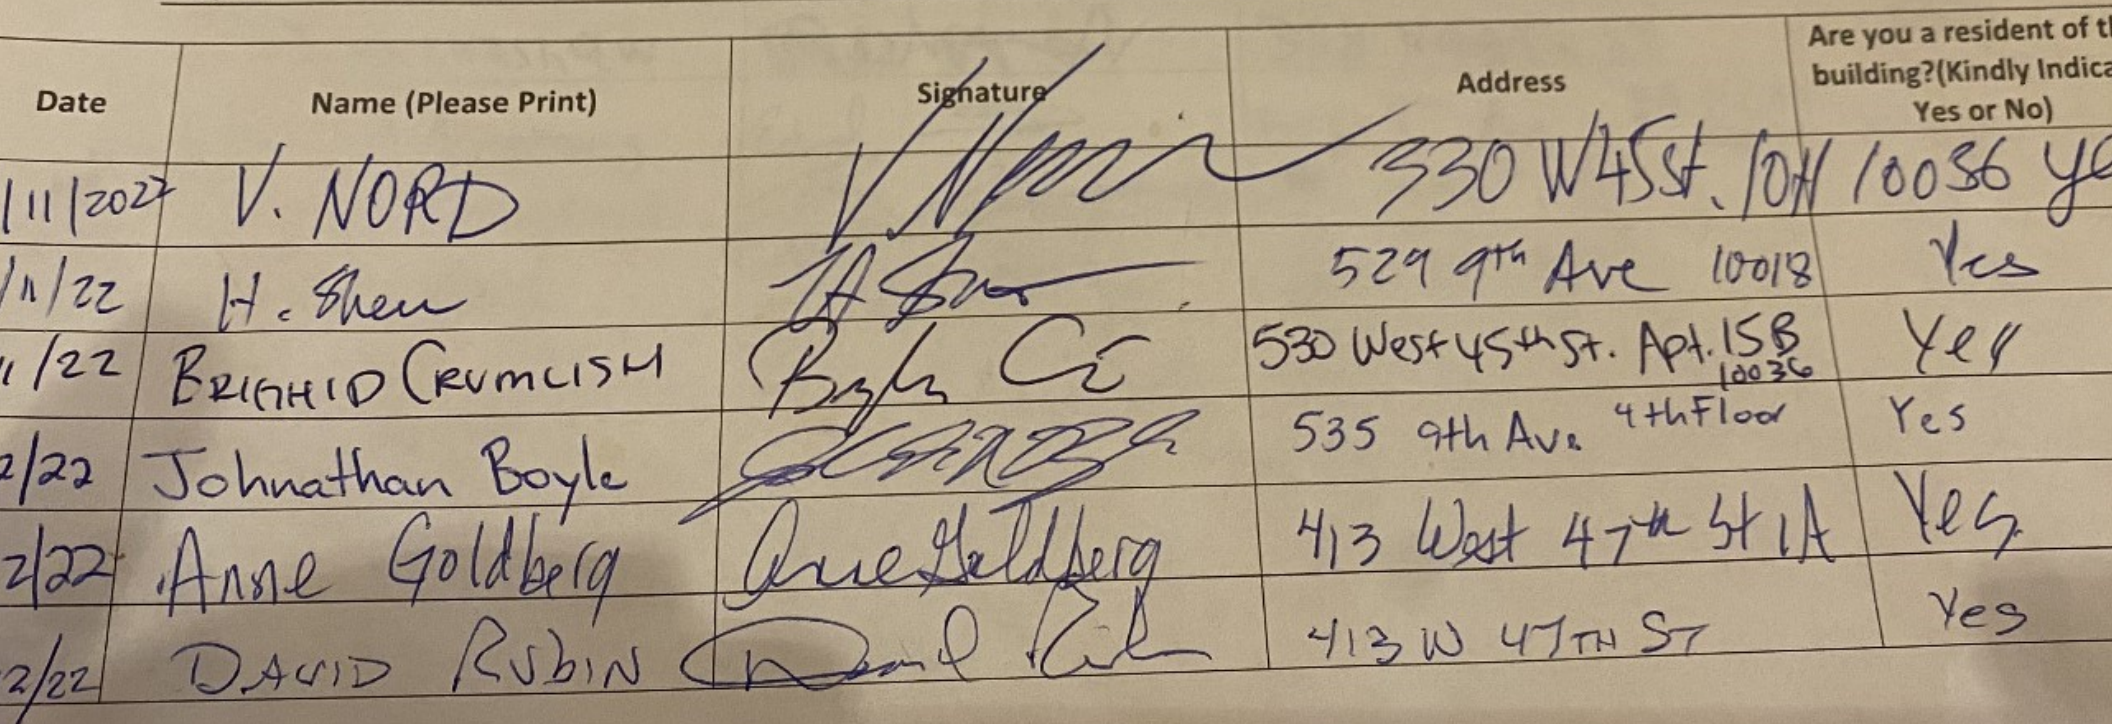 Date Name (Please Print) Signature Address Are you a resident of th
building?(Kindly Indica
Yes or No)
/11/2022 V. NORD V. Nord 330 W45st. 10H 10036 ye
/11/22 H. Shen 529 9th Ave 10018 Yes
1/22 BRIGHID CRUMLISH 530 West 45th St. Apt. 15B 10036 Yes
2/22 Johnathan Boyle 535 9th Ave 4th Floor Yes
2/22 Anne Goldberg Anne Goldberg 413 West 47th St 1A Yes
2/22 DAVID RUBIN David Rubin 413 W 47TH ST Yes